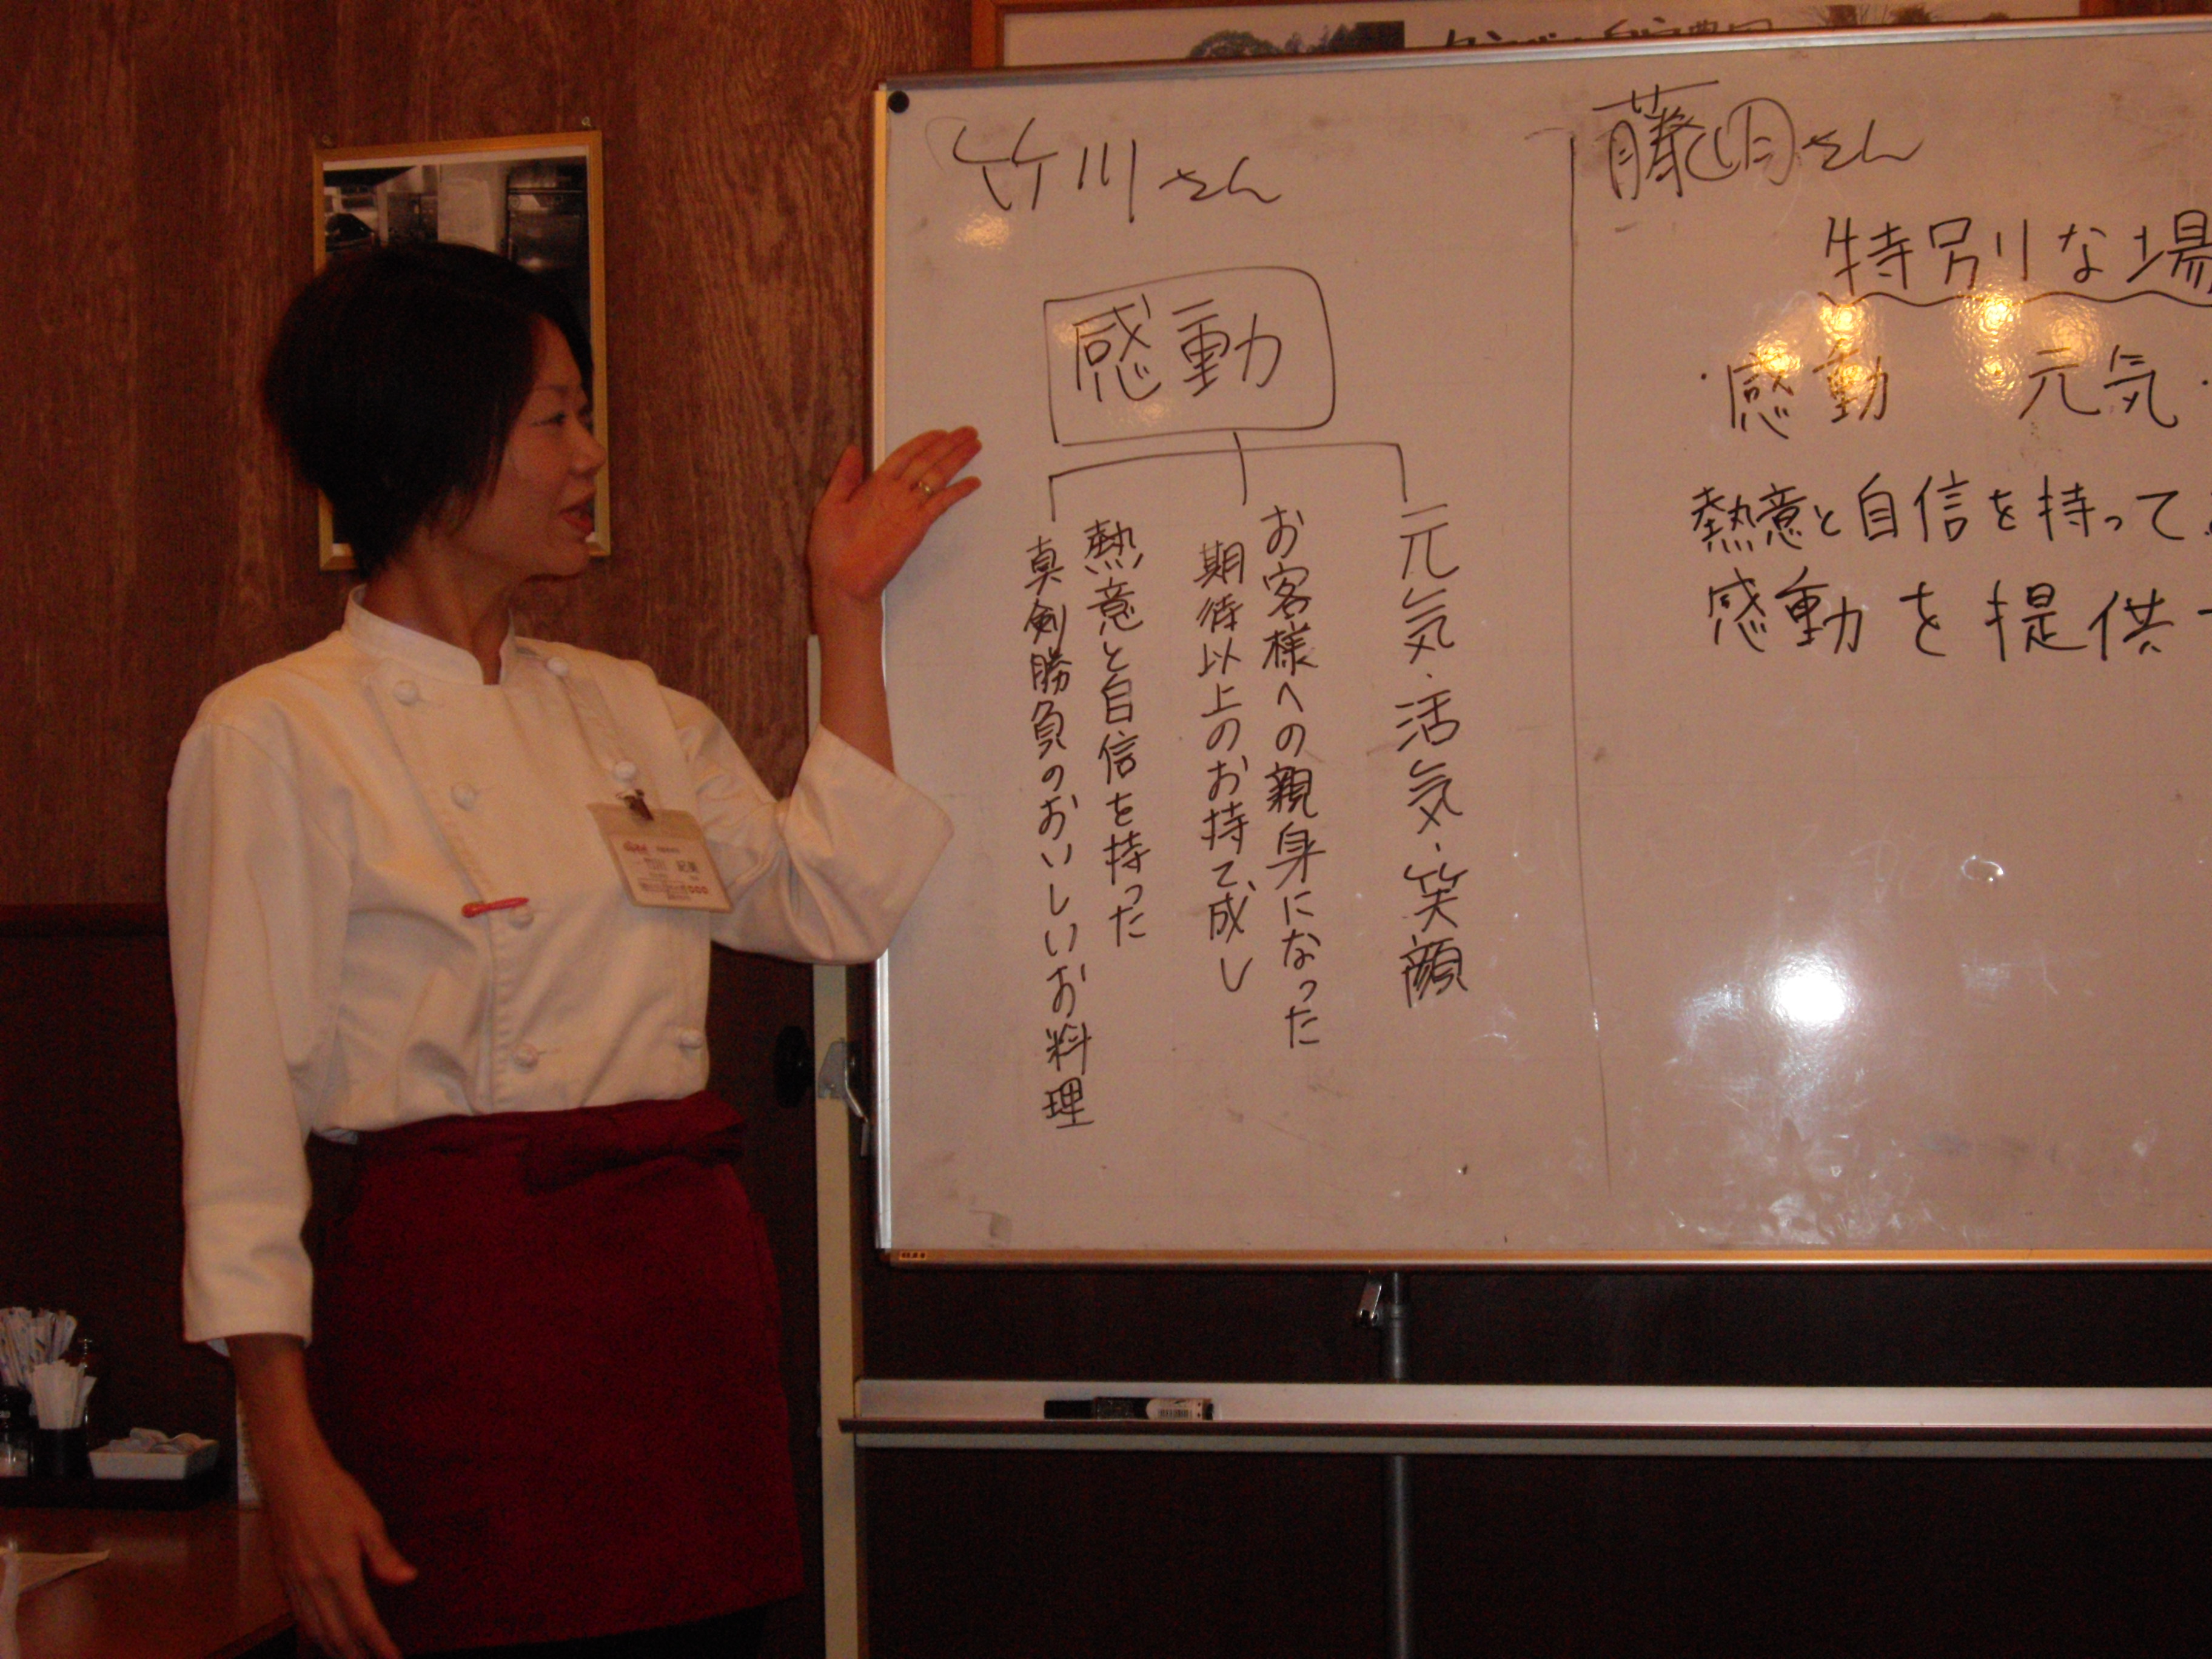 竹川さん
感動
元気・活気・笑顔
お客様への親身になった
期待以上のお持て成し
熱意と自信を持った
真剣勝負のおいしいお料理
特別な場
・感動 元気・
熱意と自信を持って
感動を提供